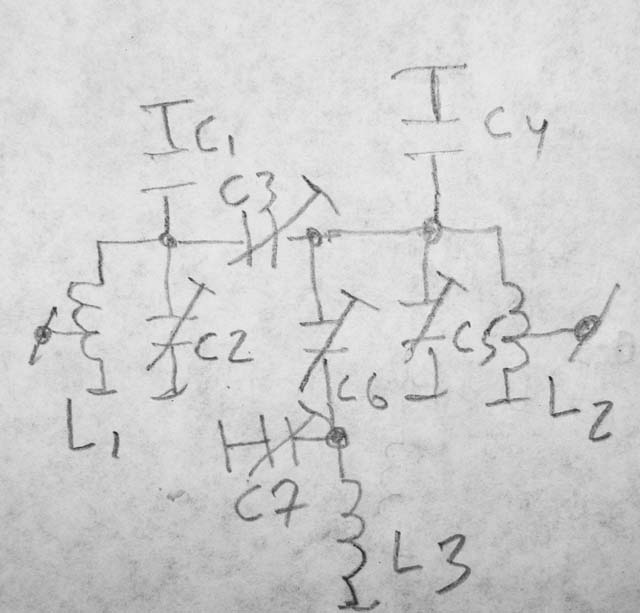 C1
C4
C3
C2
C5
C6
L1
L2
C7
L3